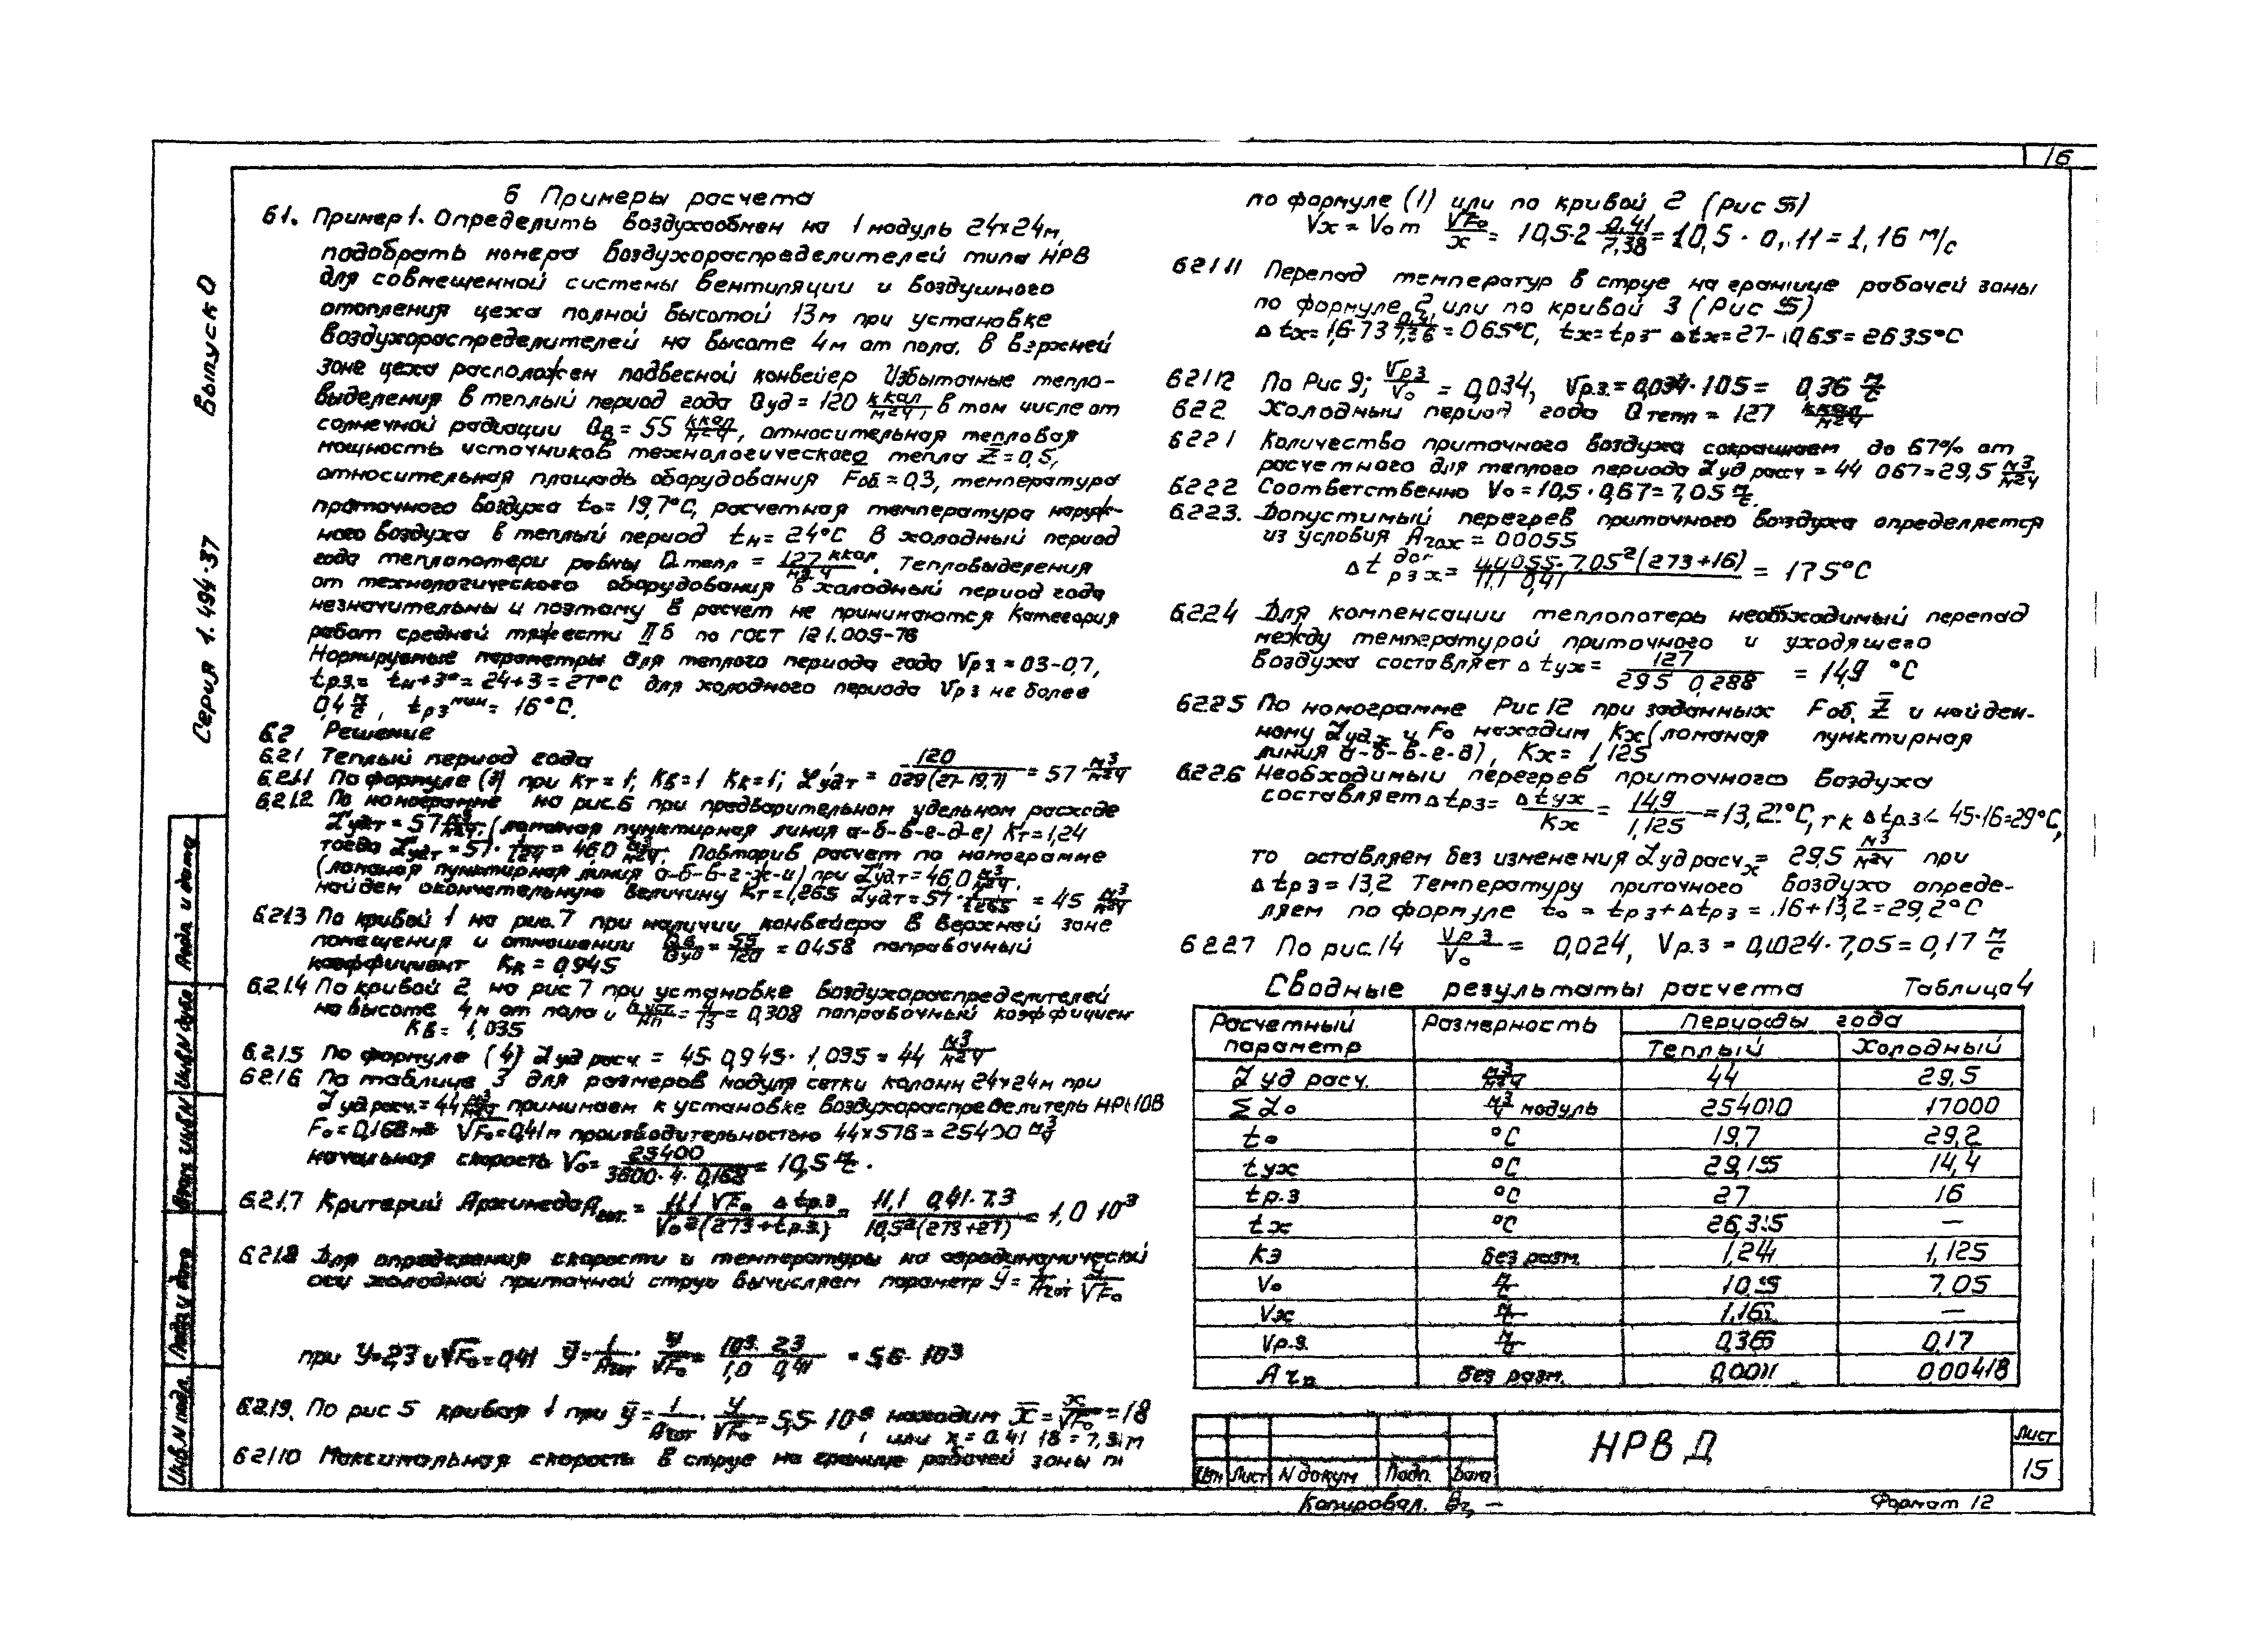 16
6 Примеры расчета
6.1. Пример 1. Определить воздухообмен на 1 модуль 24х24м,
подобрать номера воздухораспределителей типа НРВ
для совмещенной системы вентиляции и воздушного
отопления цеха полной высотой 13м при установке
воздухораспределителей на высоте 4м от пола. В верхней
зоне цеха расположен подвесной конвейер Избыточные тепло-
выделения в теплый период года Qуд = 120 ккал/м²ч, в том числе от
солнечной радиации Qв = 55 ккал/м²ч, относительная тепловая
мощность источников технологического тепла Z̄ = 0,5,
относительная площадь оборудования Fоб = 0,3, температура
приточного воздуха tо = 19,7°С, расчетная температура наруж-
ного воздуха в теплый период tн = 24°С В холодный период
года теплопотери равны Qтепл = 127 ккал/м²ч. Тепловыделения
от технологического оборудования в холодный период года
незначительны и поэтому в расчет не принимаются Категория
работ средней тяжести IIб по ГОСТ 12 1.005-76
Нормируемые параметры для теплого периода года Vрз = 03-0,7,
tр.з = tн+3° = 24+3 = 27°С для холодного периода Vрз не более
0,4 м/с, tрз мин = 16°С.
6.2 Решение
6.2.1 Теплый период года
6.2.1.1 По формуле (3) при Кт = 1; Кв = 1 Кк = 1; Lудт = 120/029(27-19,7) = 57 м³/м²ч
6.2.1.2 По номограмме на рис.6 при предварительном удельном расходе
Lудт = 57 м³/м²ч. (ломаная пунктирная линия а-б-в-г-д-е) Кт = 1,24
тогда Lудт = 57· 1/124 = 46,0 м³/м²ч. Повторив расчет по номограмме
(ломаная пунктирная линия а-б-в-г-ж-и) при Lудт = 46,0 м³/м²ч.
найдем окончательную величину Кт = 1,265 Lудт = 57· 1/1265 = 45 м³/м²ч
6.2.1.3 По кривой 1 на рис.7 при наличии конвейера в верхней зоне
помещения и отношении Qв/Qуд = 55/120 = 0458 поправочный
коэффициент Кк = 0,945
6.2.1.4 По кривой 2 на рис 7 при установке воздухораспределителей
на высоте 4м от пола и = 4/13 = 0,308 поправочный коэффициен
Кв = 1,035
6.2.1.5 По формуле (4) Lуд расч. = 45· 0,945· 1,035 = 44 м³/м²ч
6.2.1.6 По таблице 3 для размеров модуля сетки колонн 24х24м при
Lуд расч. = 44 м³/м²ч принимаем к установке воздухораспределитель
Fо = 0,168м² √Fо = 0,41м производительностью 44х576 = 25400 м³/ч
начальная скорость Vо = 25400/3600·4·0,168 = 10,5 м/с.
6.2.1.7 Критерий Архимеда = 11.1 √Fо Δtр.з/Vо²(273+tр.з) = 11,1 0,41·7.3/10,5²(273+27) = 1,0 10³
6.2.1.8 Для определения скорости и температуры на аэродинамической
оси холодной приточной струи вычисляем параметр ȳ = · У/√Fо
при У=2,3 и √Fо = 0,41 ȳ = · У/√Fо = 10³· 2,3/1,0 0,41 = 5,6· 10³
6.2.1.9. По рис 5 кривая 1 при ȳ = · У/√Fо = 5,5· находим x̄ = x/√Fо = 18
или x = 0.41 18 = 7,
6.2.1.10 Максимальная скорость в струе на границе рабочей зоны
по формуле (1) или по кривой 2 (рис 5)
Vx = Vо m √Fо/x = 10,5·2 0,41/7,38 = 10,5 · 0,11 = 1,16 м/с
6.2.1.11 Перепад температур в струе на границе рабочей зоны
по формуле 2 или по кривой 3 (Рис 5)
Δtx = 1,6·73 0,41/7,36 = 065°С, tx = tрз Δtx = 27- 0,65 = 2635°С
6.2.1.12 По Рис 9; Vрз/Vо = 0,034, Vр.з. = 0,034·105 = 0,36 м/с
6.2.2 Холодный период года Qтепл = 127 ккал/м²ч
6.2.2.1 Количество приточного воздуха сокращаем до 67% от
расчетного для теплого периода Lуд расч = 44 067 = 29,5 м³/м²ч
6.2.2.2 Соответственно Vо = 10,5·0,67 = 7,05 м/с.
6.2.2.3. Допустимый перегрев приточного воздуха определяется
из условия Aгох = 00055
Δt доп рз х = 7.05²(273+16)/11,1 0,41 = 17 5°С
6.2.2.4 Для компенсации теплопотерь необходимый перепад
между температурой приточного и уходящего
воздуха составляет Δtух = 127/29 5 0,288 = 14,9 °С
6.2.2.5 По номограмме Рис 12 при заданных Fоб, Z̄ и найден-
ному Lуд.х и Fо находим Кх (ломаная пунктирная
линия а-б-в-г-д), Кх = 1,125
6.2.2.6 Необходимый перегрев приточного воздуха
составляет Δtрз = Δtух/Кх = 14,9/1,125 = 13,2°С, т к Δtрз < 45-16=29°С,
то оставляем без изменения Lуд расч х = 29,5 м³/м²ч при
Δtрз = 13,2 Температуру приточного воздуха опреде-
ляем по формуле tо = tрз+Δtрз = 16+13,2 = 29,2°С
6.2.2.7 По рис.14 Vрз/Vо = 0,024, Vр.з = 0,024·7,05 = 0,17 м/с
Сводные результаты расчета Таблица 4
Расчетный параметр Размерность Периоды года
Теплый Холодный
L уд расч. м³/м²ч 44 29,5
ΣLо м³/ч модуль 17000
tо °С 19,7 29,2
tух °С 14,4
tр.з °С 27 16
tх °С —
Кэ без разм. 1,24 1,125
Vо м/с 7,05
Vх м/с —
Vр.з. м/с 0,17
без разм. 0,00418
НРВ Д
Лист
15
Изм Лист N докум Подп. Дата
Копировал.
Формат 12
Серия 1.494-37 Выпуск 0
Инв.N подл. Подп и дата Взам инв.N Инв.N дубл. Подп. и дата